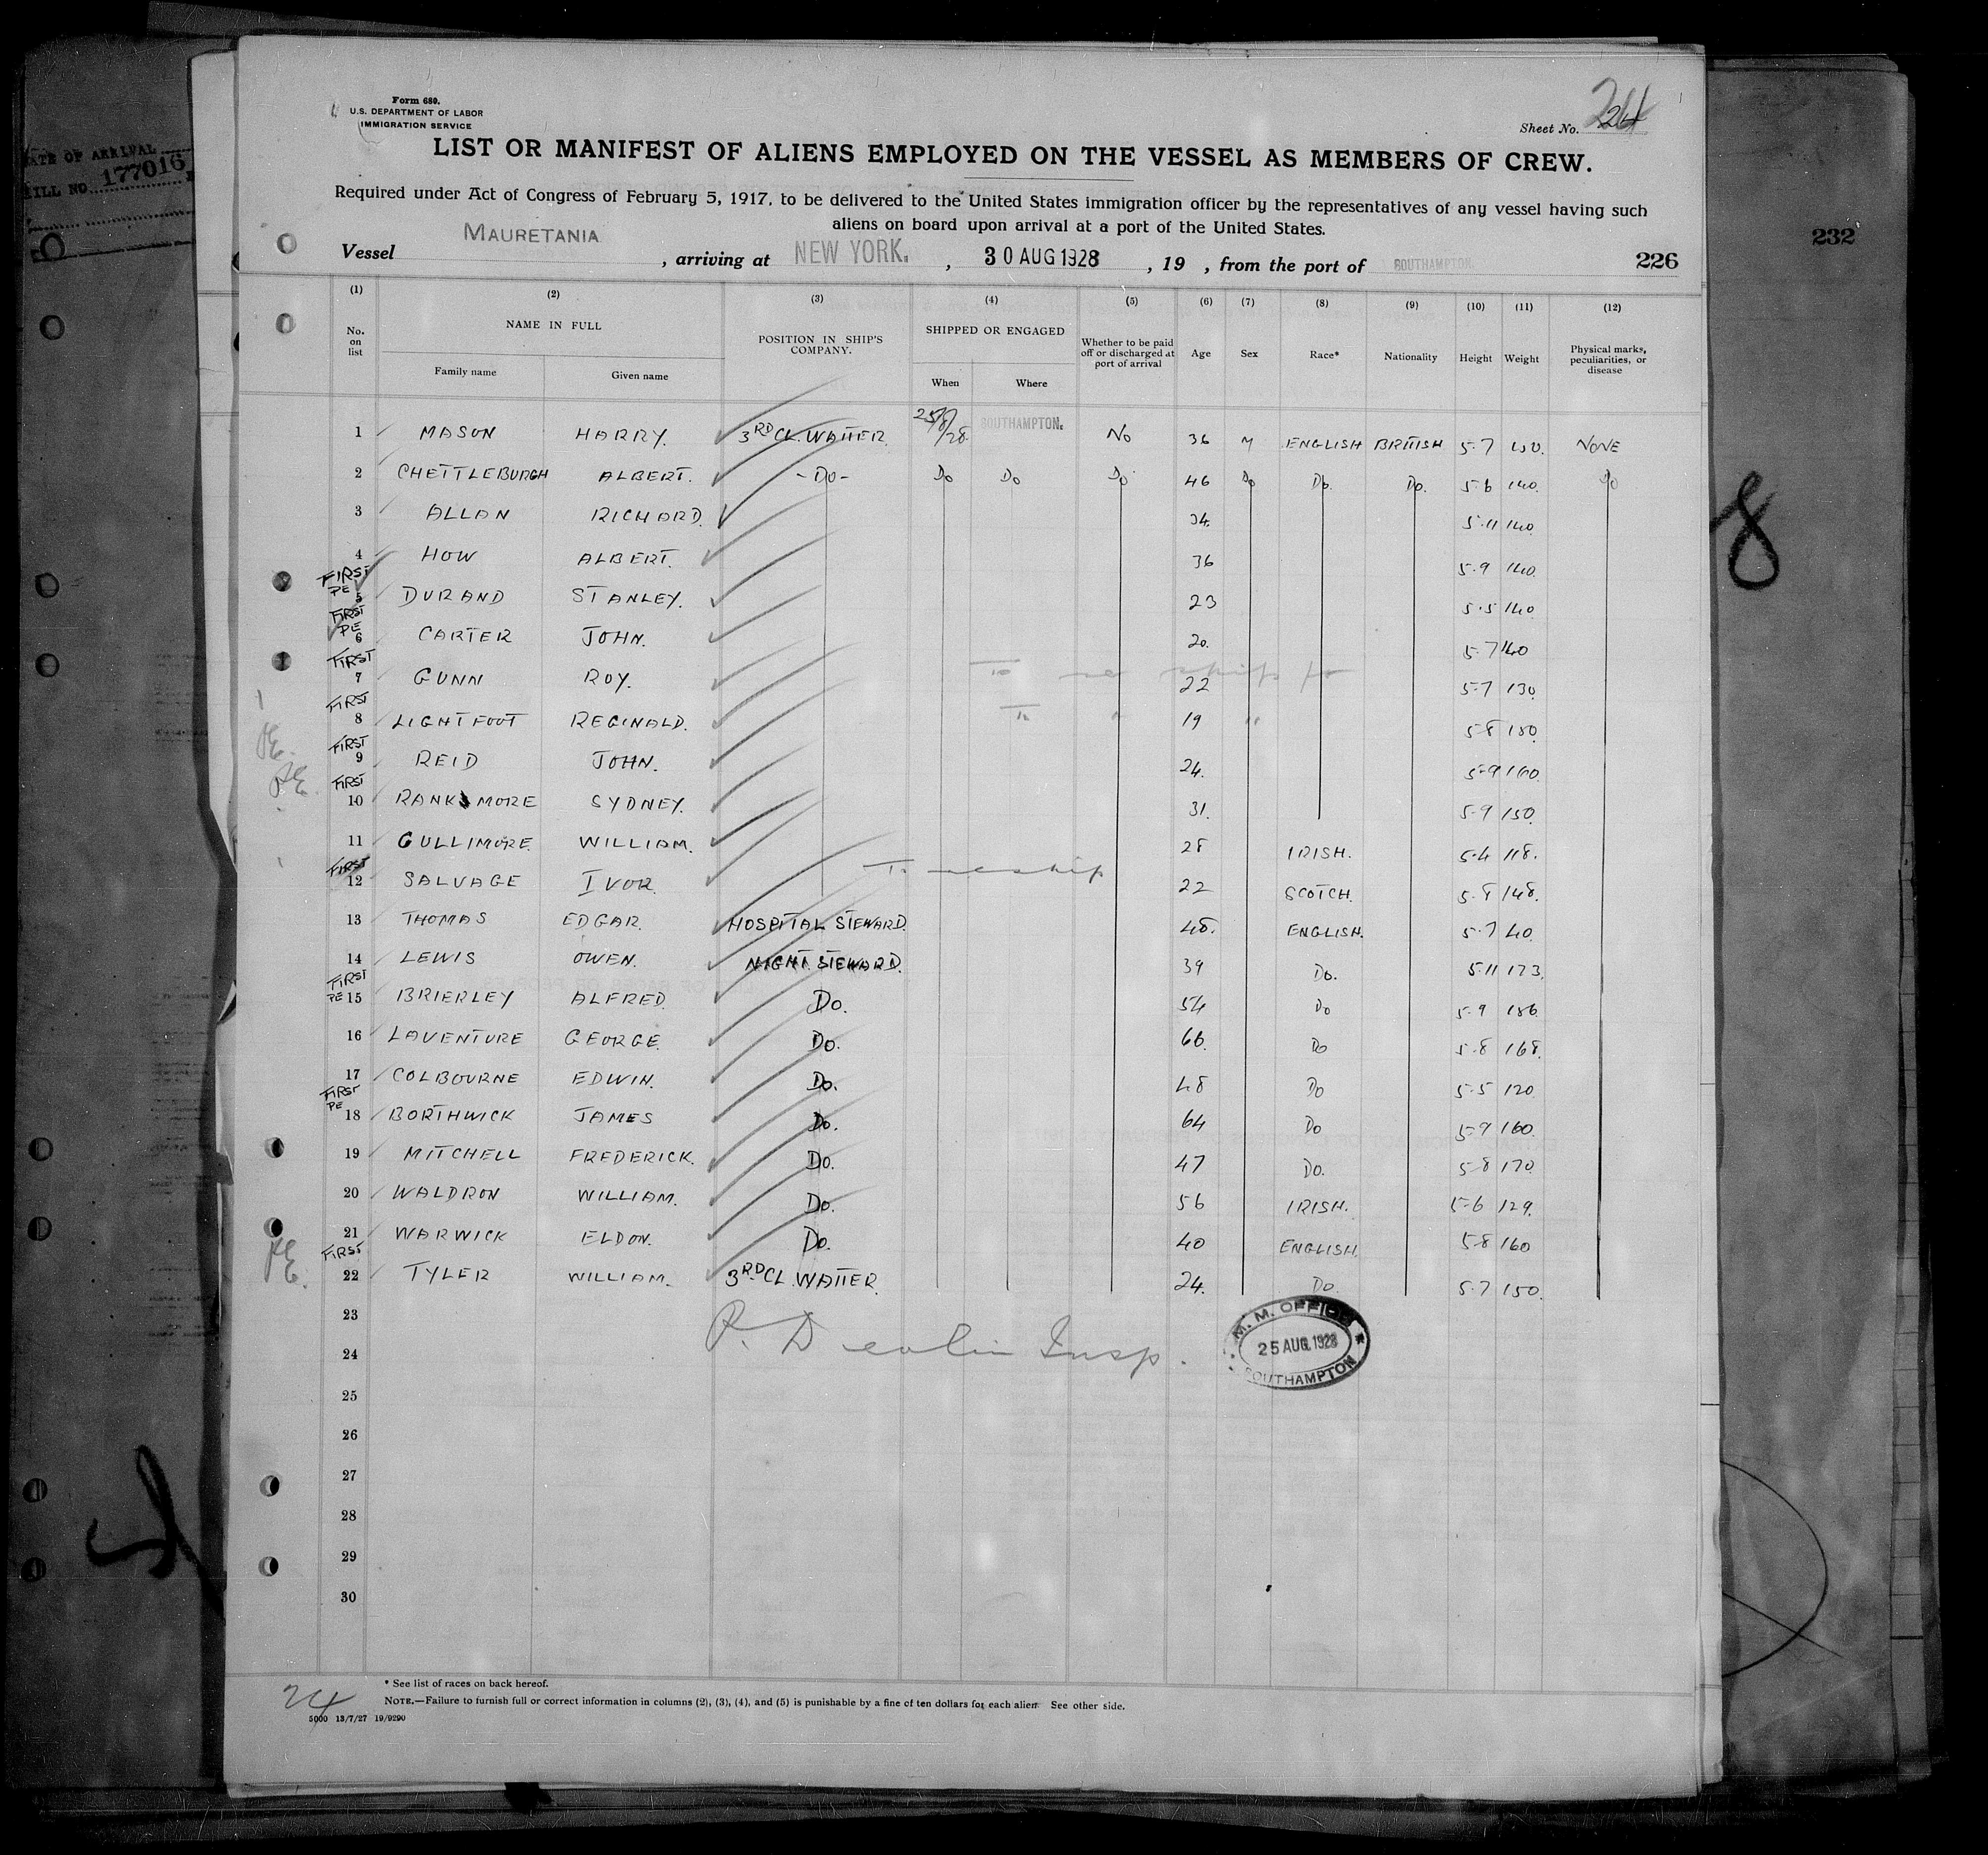 DATE OF ARRIVAL
BILL NO. 177016
Form 680.
U.S. DEPARTMENT OF LABOR
IMMIGRATION SERVICE
Sheet No. 24
LIST OR MANIFEST OF ALIENS EMPLOYED ON THE VESSEL AS MEMBERS OF CREW.
Required under Act of Congress of February 5, 1917, to be delivered to the United States immigration officer by the representatives of any vessel having such
aliens on board upon arrival at a port of the United States.
Vessel MAURETANIA, arriving at NEW YORK., 30 AUG 1928, 19 , from the port of SOUTHAMPTON. 226
232
(1) (2) (3) (4) (5) (6) (7) (8) (9) (10) (11) (12)
No. on list NAME IN FULL Family name Given name POSITION IN SHIP'S COMPANY. SHIPPED OR ENGAGED When Where Whether to be paid off or discharged at port of arrival Age Sex Race* Nationality Height Weight Physical marks, peculiarities, or disease
1 MASON HARRY. 3RD CL. WAITER 25/8/28 SOUTHAMPTON. NO 36 M ENGLISH BRITISH 5-7 NONE
2 CHETTLEBURGH ALBERT. -DO- DO DO DO 46 DO DO. DO. 5-6 140. DO
3 ALLAN RICHARD. 34. 5-11 140
4 HOW ALBERT. 36 5-9 140.
FIRST PE 5 DURAND STANLEY. 23 5-5 140
FIRST PE 6 CARTER JOHN. 20. 5-7 140
FIRST 7 GUNN ROY. 22 5-7 130
FIRST 8 LIGHTFOOT REGINALD. 19 5-8 150
FIRST 9 REID JOHN. 24. 5-9 160
FIRST 10 RANKMORE SYDNEY. 31. 5-9 150
11 GULLIMORE WILLIAM. 28 IRISH. 5-4 118.
FIRST 12 SALVAGE IVOR. 22 SCOTCH. 5-8 148.
13 THOMAS EDGAR. HOSPITAL STEWARD. 48. ENGLISH. 5-7 40.
14 LEWIS OWEN. NIGHT STEWARD. 39 DO. 5-11 173.
FIRST PE 15 BRIERLEY ALFRED DO. 54 DO 5-9 186
16 LAVENTURE GEORGE. DO. 66. DO 5-8 168.
17 COLBOURNE EDWIN. DO. 48 DO 5-5 120
FIRST PE 18 BORTHWICK JAMES DO. 64 DO 5-9 160.
19 MITCHELL FREDERICK. DO. 47 DO. 5-8 170
20 WALDRON WILLIAM. DO. 56 IRISH. 5-6 129.
21 WARWICK ELDON. DO. 40 ENGLISH. 5-8 160
PE. FIRST 22 TYLER WILLIAM. 3RD CL. WAITER 24. DO 5-7 150.
23
P. Insp.
M. M. OFFICE
25 AUG 1928
SOUTHAMPTON
24
25
26
27
28
29
30
* See list of races on back hereof.
NOTE.—Failure to furnish full or correct information in columns (2), (3), (4), and (5) is punishable by a fine of ten dollars for each alien. See other side.
24
5000 13/7/27 19/9290